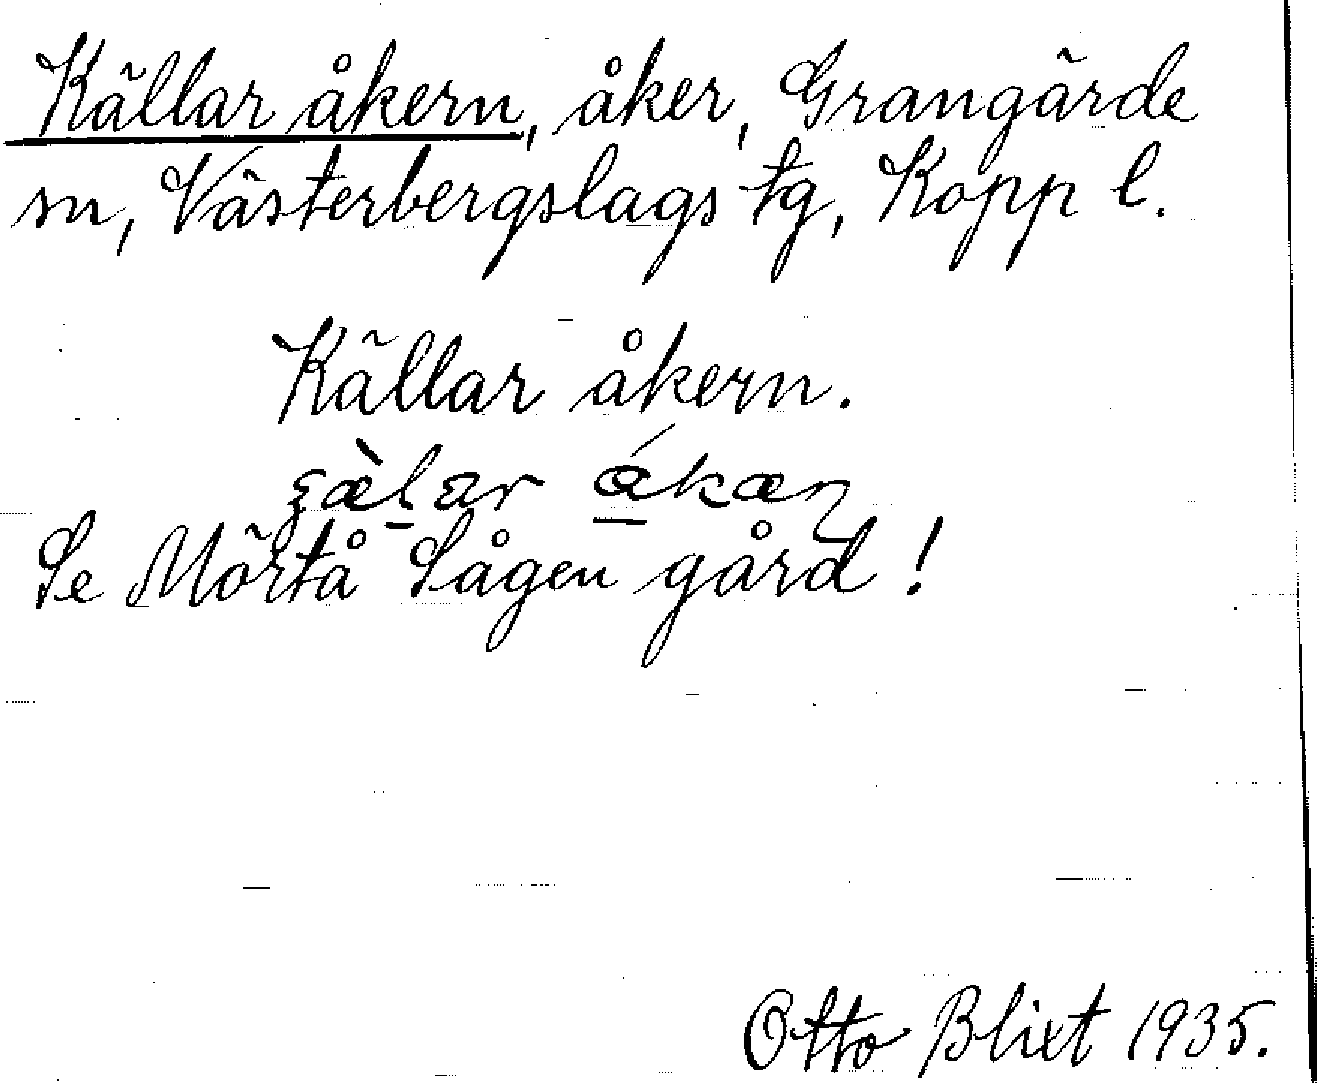 Källar åkern, åker, Grangärde
sn, Västerbergslags tg, Kopp l.
Källar åkern.
Se Mörtå Sågen gård!
Otto Blixt 1935.